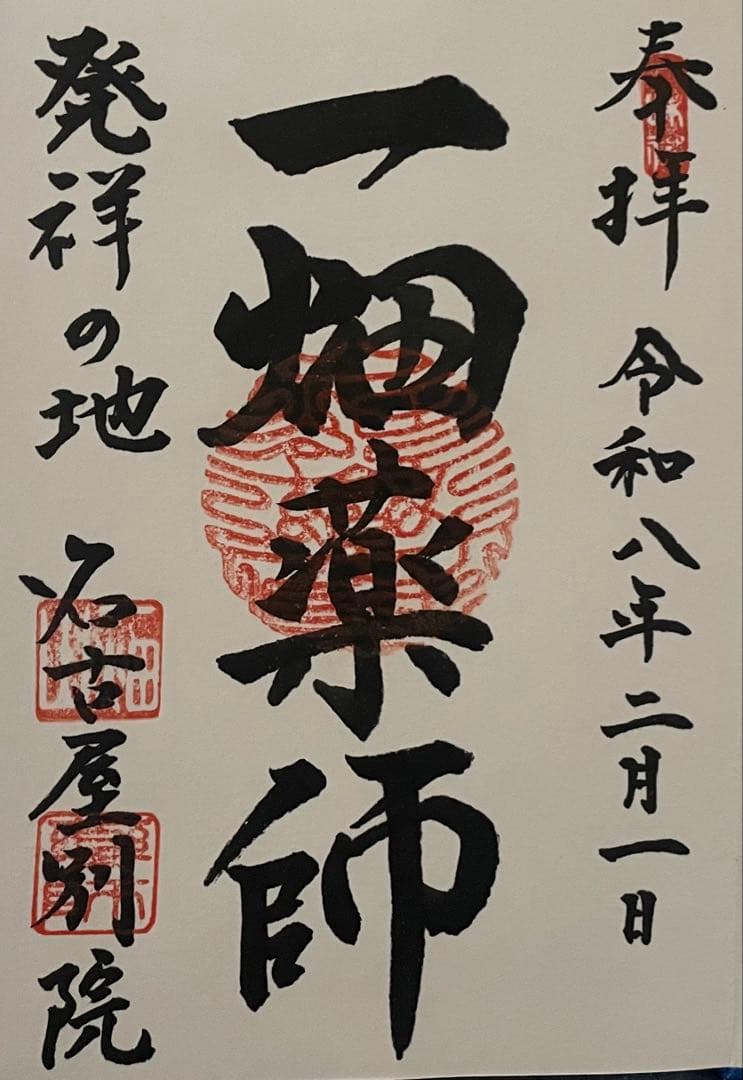 奉拝 令和八年二月一日
一畑薬師
発祥の地 名古屋別院